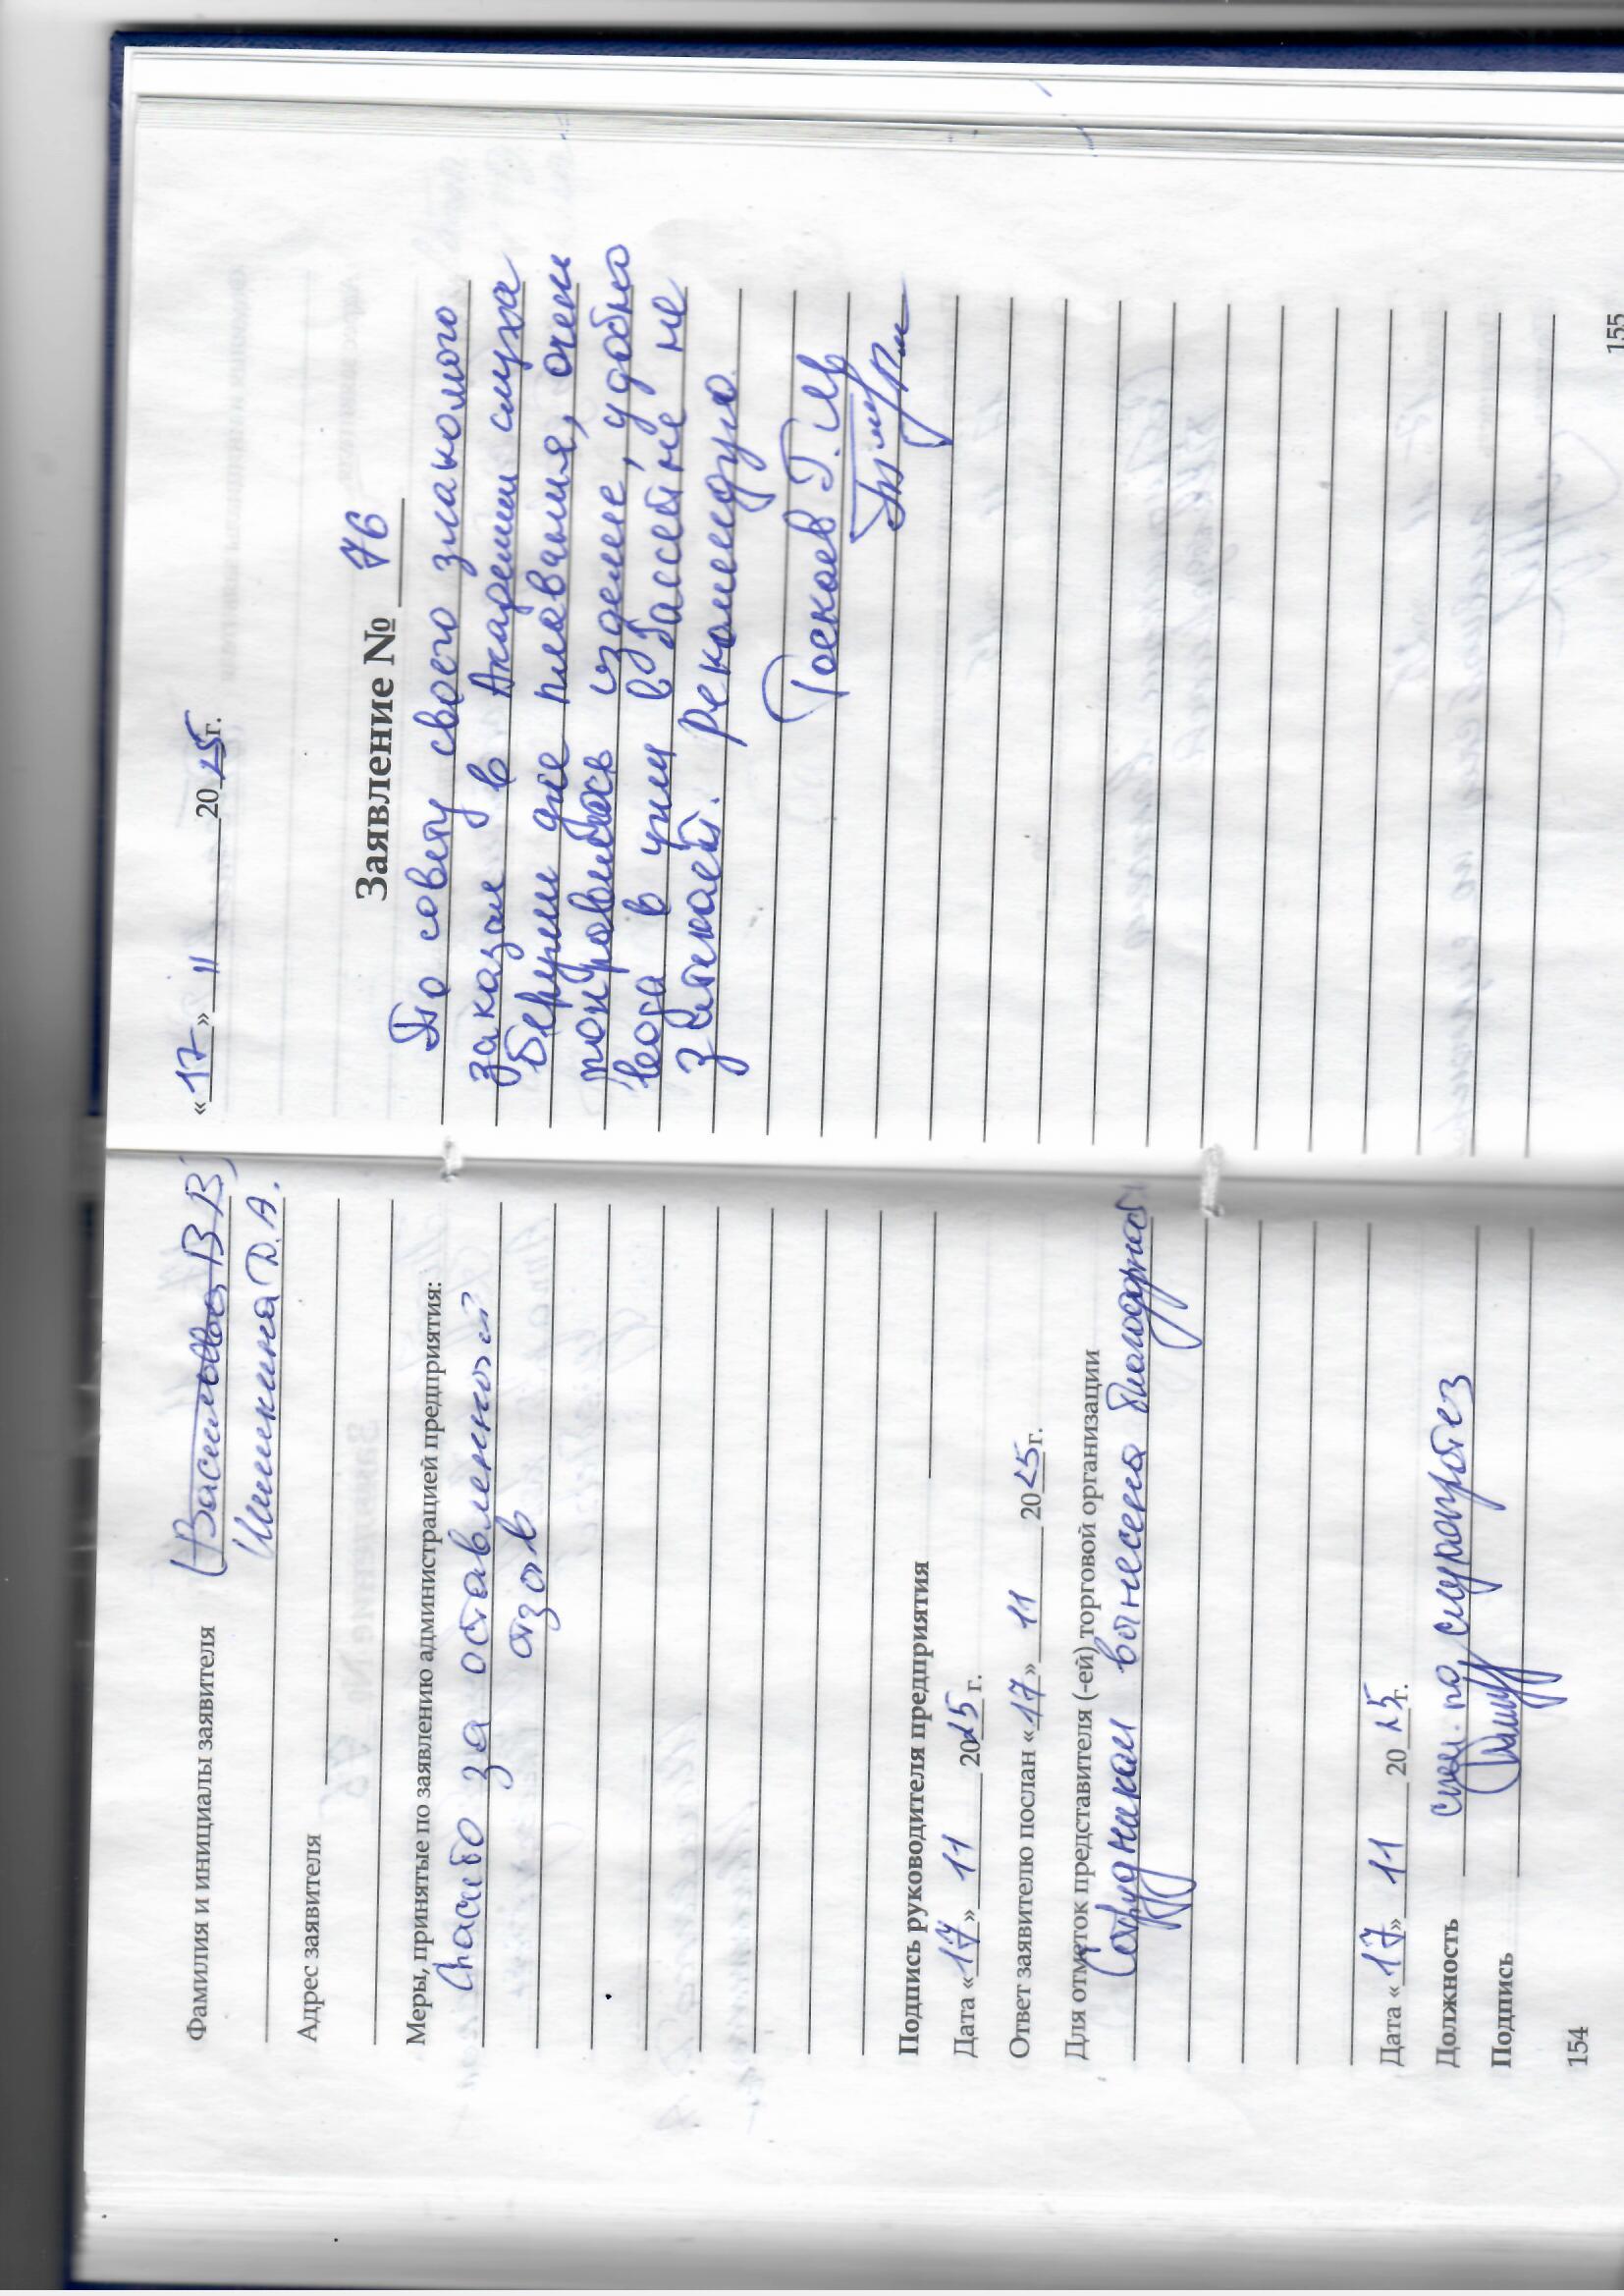 Фамилия и инициалы заявителя Васильева В В
Шишкина Д. А.
Адрес заявителя
Меры, принятые по заявлению администрацией предприятия:
Спасибо за оставленный
отзыв
Подпись руководителя предприятия
Дата «17» 11 2025 г.
Ответ заявителю послан «17» 11 2025 г.
Для отметок представителя (-ей) торговой организации
Сотрудникам вынесена благодарност
Дата «17» 11 2025 г.
Должность спец. по слухопротез
Подпись
154
«17» 11 2025г.
Заявление № 76
По совету своего знакомого
заказал в Академии слуха
Беруши для плавания, очень
понравилось изделие, удобно
вода в уши в бассейне не
затекает. Рекомендую.
Токаев Г.
155